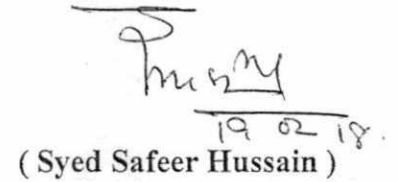 19 02 18.
( Syed Safeer Hussain )